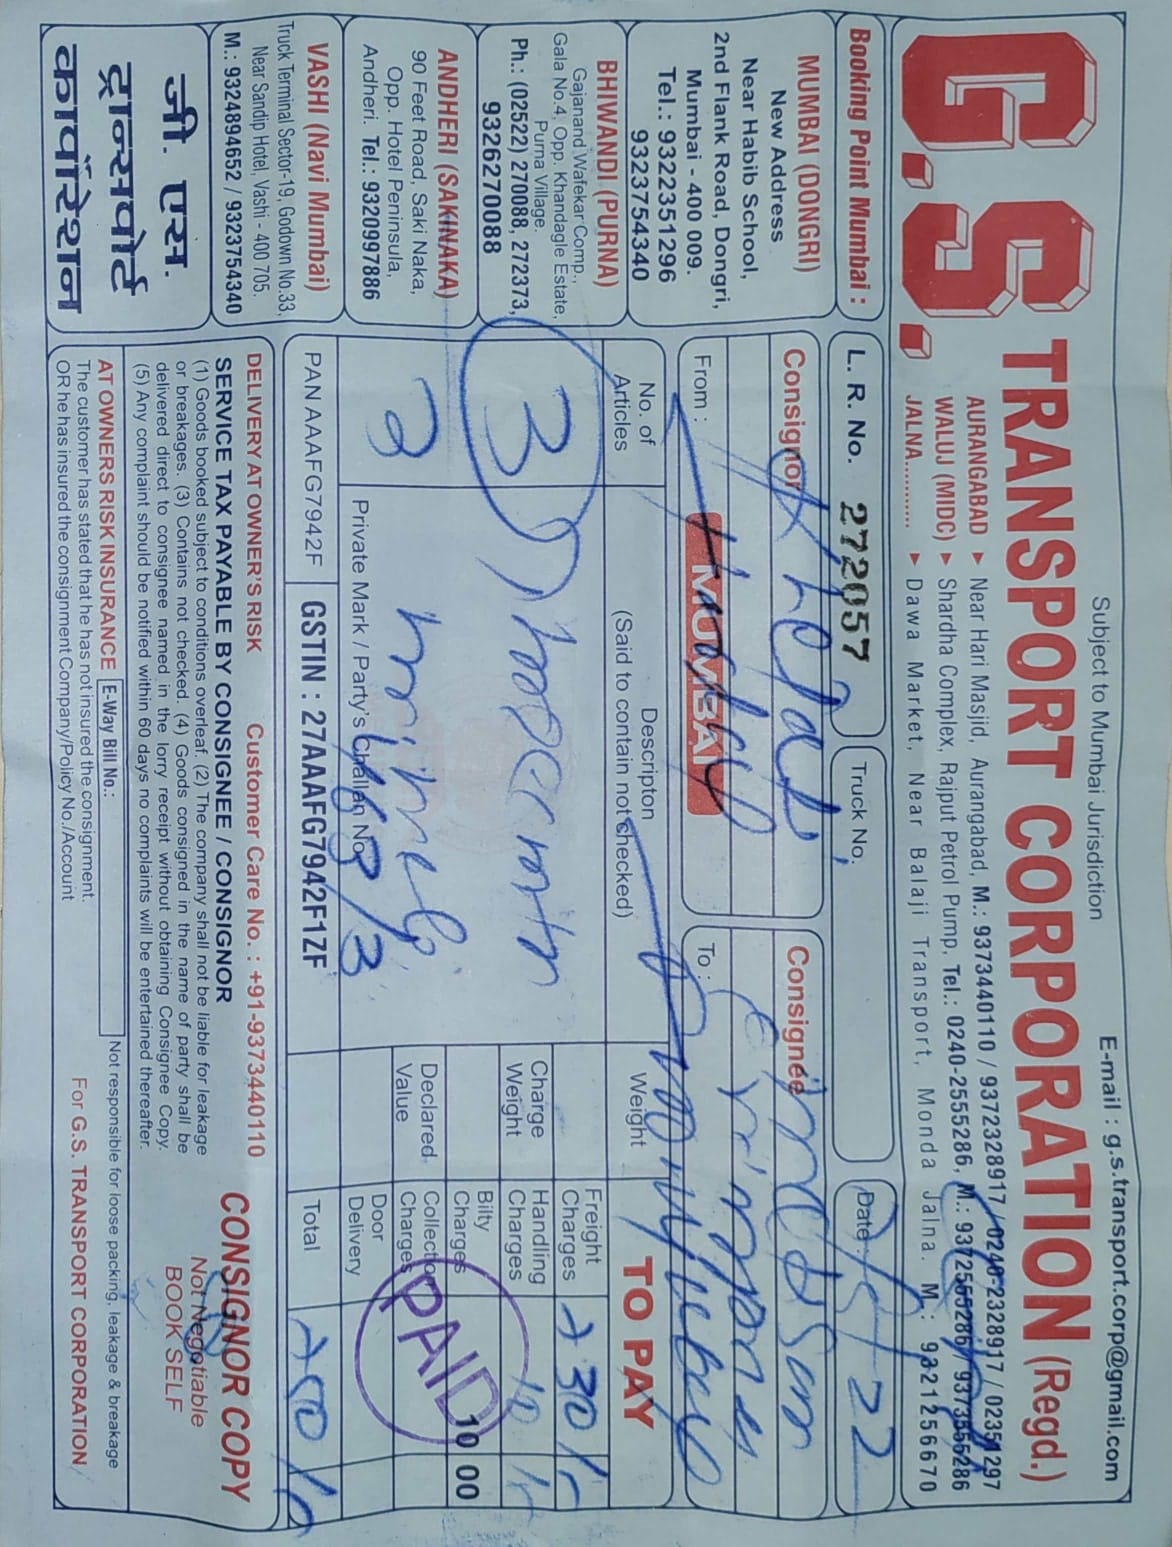 Subject to Mumbai Jurisdiction
E-mail : g.s.transport.corp@gmail.com
G.S. TRANSPORT CORPORATION (Regd.)
AURANGABAD ▸ Near Hari Masjid, Aurangabad, M.: 9373440110 / 9372328917 / 0240-2328917 / 02351297
WALUJ (MIDC) ▸ Shardha Complex, Rajput Petrol Pump, Tel.: 0240-2555286, M.:
JALNA........... ▸ Dawa Market, Near Balaji Transport, Monda Jalna. M : 9321256670
Booking Point Mumbai :
MUMBAI (DONGRI)
New Address
Near Habib School,
2nd Flank Road, Dongri,
Mumbai - 400 009.
Tel.: 9322351296
9323754340
BHIWANDI (PURNA)
Gajanand Wafekar Comp.,
Gala No.4, Opp. Khandagle Estate,
Purna Village.
Ph.: (02522) 270088, 272373,
9326270088
ANDHERI (SAKINAKA)
90 Feet Road, Saki Naka,
Opp. Hotel Peninsula,
Andheri. Tel.: 9320997886
VASHI (Navi Mumbai)
Truck Terminal Sector-19, Godown No.33,
Near Sandip Hotel, Vashi - 400 705.
M.: 9324894652 / 9323754340
जी. एस.
ट्रान्सपोर्ट
कार्पोरेशन
L. R. No. 272057
Truck No.
Date
Consignor
Consignee
From : MUMBAI
To :
No. of Articles
Descripton
(Said to contain not checked)
Weight
TO PAY
3
2
Freight Charges 230/-
Charge Weight
Handling Charges 10/-
Bilty Charges 10 00
Declared Value
Collection Charges
PAID
Door Delivery
Private Mark / Party's Challan No.
PAN AAAFG7942F
GSTIN : 27AAAFG7942F1ZF
Total 250/-
DELIVERY AT OWNER'S RISK
Customer Care No. : +91-9373440110
SERVICE TAX PAYABLE BY CONSIGNEE / CONSIGNOR
(1) Goods booked subject to conditions overleaf. (2) The company shall not be liable for leakage
or breakages. (3) Contains not checked. (4) Goods consigned in the name of party shall be
delivered direct to consignee named in the lorry receipt without obtaining Consignee Copy.
(5) Any complaint should be notified within 60 days no complaints will be entertained thereafter.
CONSIGNOR COPY
Not Negotiable
BOOK SELF
AT OWNERS RISK INSURANCE
E-Way Bill No.:
The customer has stated that he has not insured the consignment.
OR he has insured the consignment Company/Policy No./Account
Not responsible for loose packing, leakage & breakage
For G.S. TRANSPORT CORPORATION